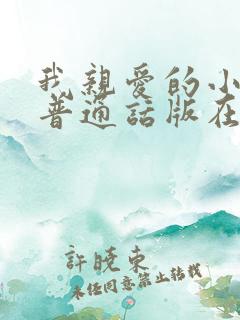 我親愛的小
普通話版在
許曉東
未經同意禁止轉載